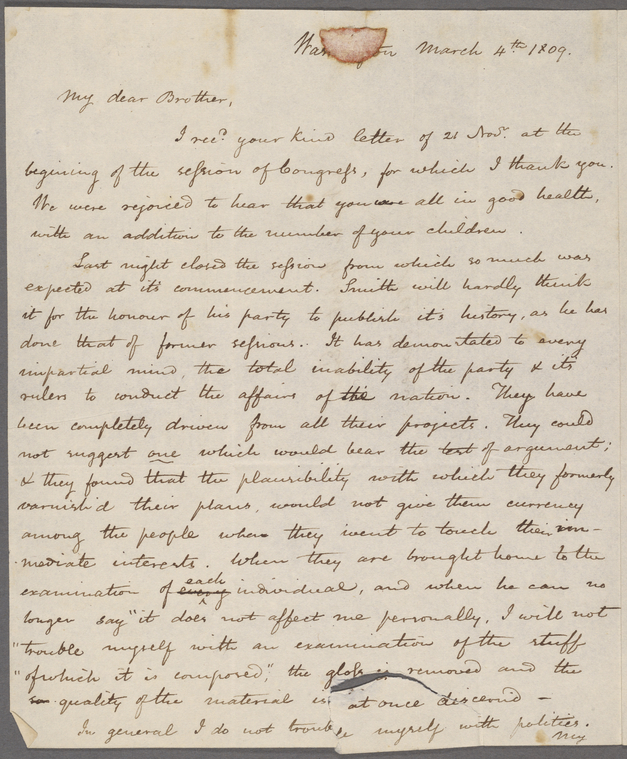 Washington March 4th 1809.
My dear Brother,
I recd. your kind letter of 21 Novr. at the
begining of the session of Congress, for which I thank you.
We were rejoiced to hear that you are all in good health,
with an addition to the number of your children.
Last night closed the session from which so much was
expected at it's commencement. Smith will hardly think
it for the honour of his party to publish it's history, as he has
done that of former sessions. It has demonstated to every
impartial mind, the total inability of the party & it's
rulers to conduct the affairs of the nation. They have
been completely driven from all their projects. They could
not suggest one which would bear the test of argument;
& they found that the plausibility with which they formerly
varnish'd their plans, would not give them currency
among the people when they went to touch their im-
mediate interests. When they are brought home to the
examination of every each individual, and when he can no
longer say "it does not affect me personally, I will not
"trouble myself with an examination of the stuff
"of which it is composed," the gloss is removed and the
quality of the material is at once discern'd -
In general I do not trouble myself with politics.
My